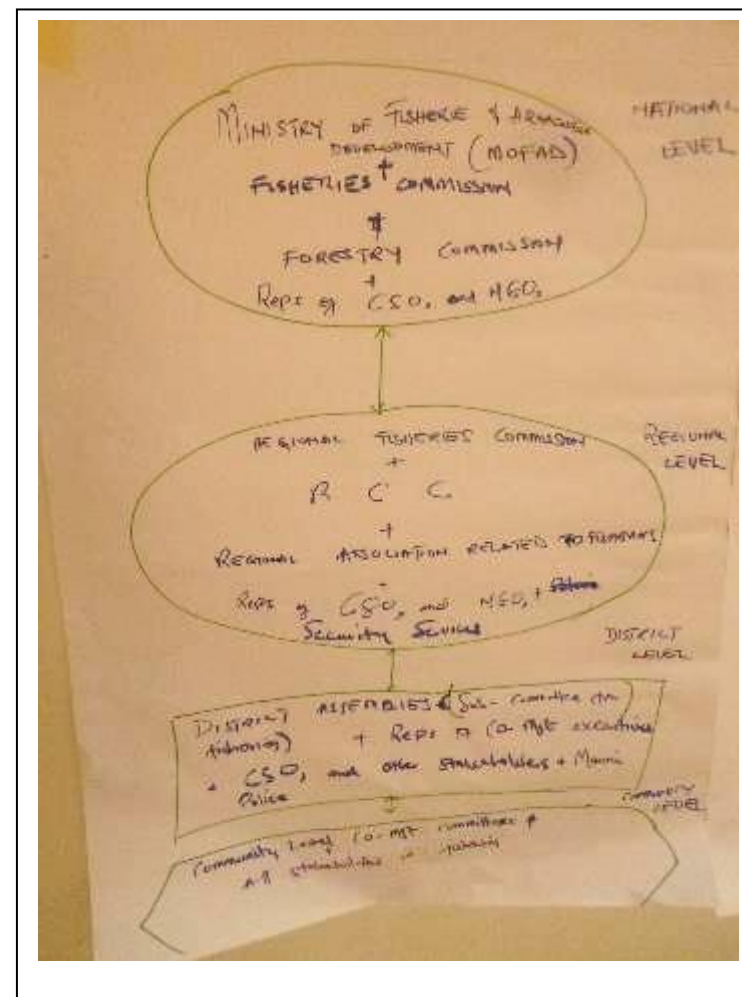 MINISTRY OF FISHERIE & AQUACULTURE
NATIONAL
DEVELOPMENT (MOFAD)
LEVEL
+
FISHERIES COMMISSION
+
FORESTRY COMMISSION
+
Reps of CSOs and NGOs
REGIONAL FISHERIES COMMISSION
REGIONAL
+
LEVEL
R C C.
+
REGIONAL ASSOCIATION RELATED TO
+
Reps of CSOs and NGOs +
Security Services
DISTRICT
LEVEL
DISTRICT ASSEMBLIES (Sub-committee on
fisheries) + Reps of Co-mgt executives
+ CSOs and other stakeholders + Marine
Police
COMMUNITY
LEVEL
Community level Co-mgt committees
All stakeholders in fisheries